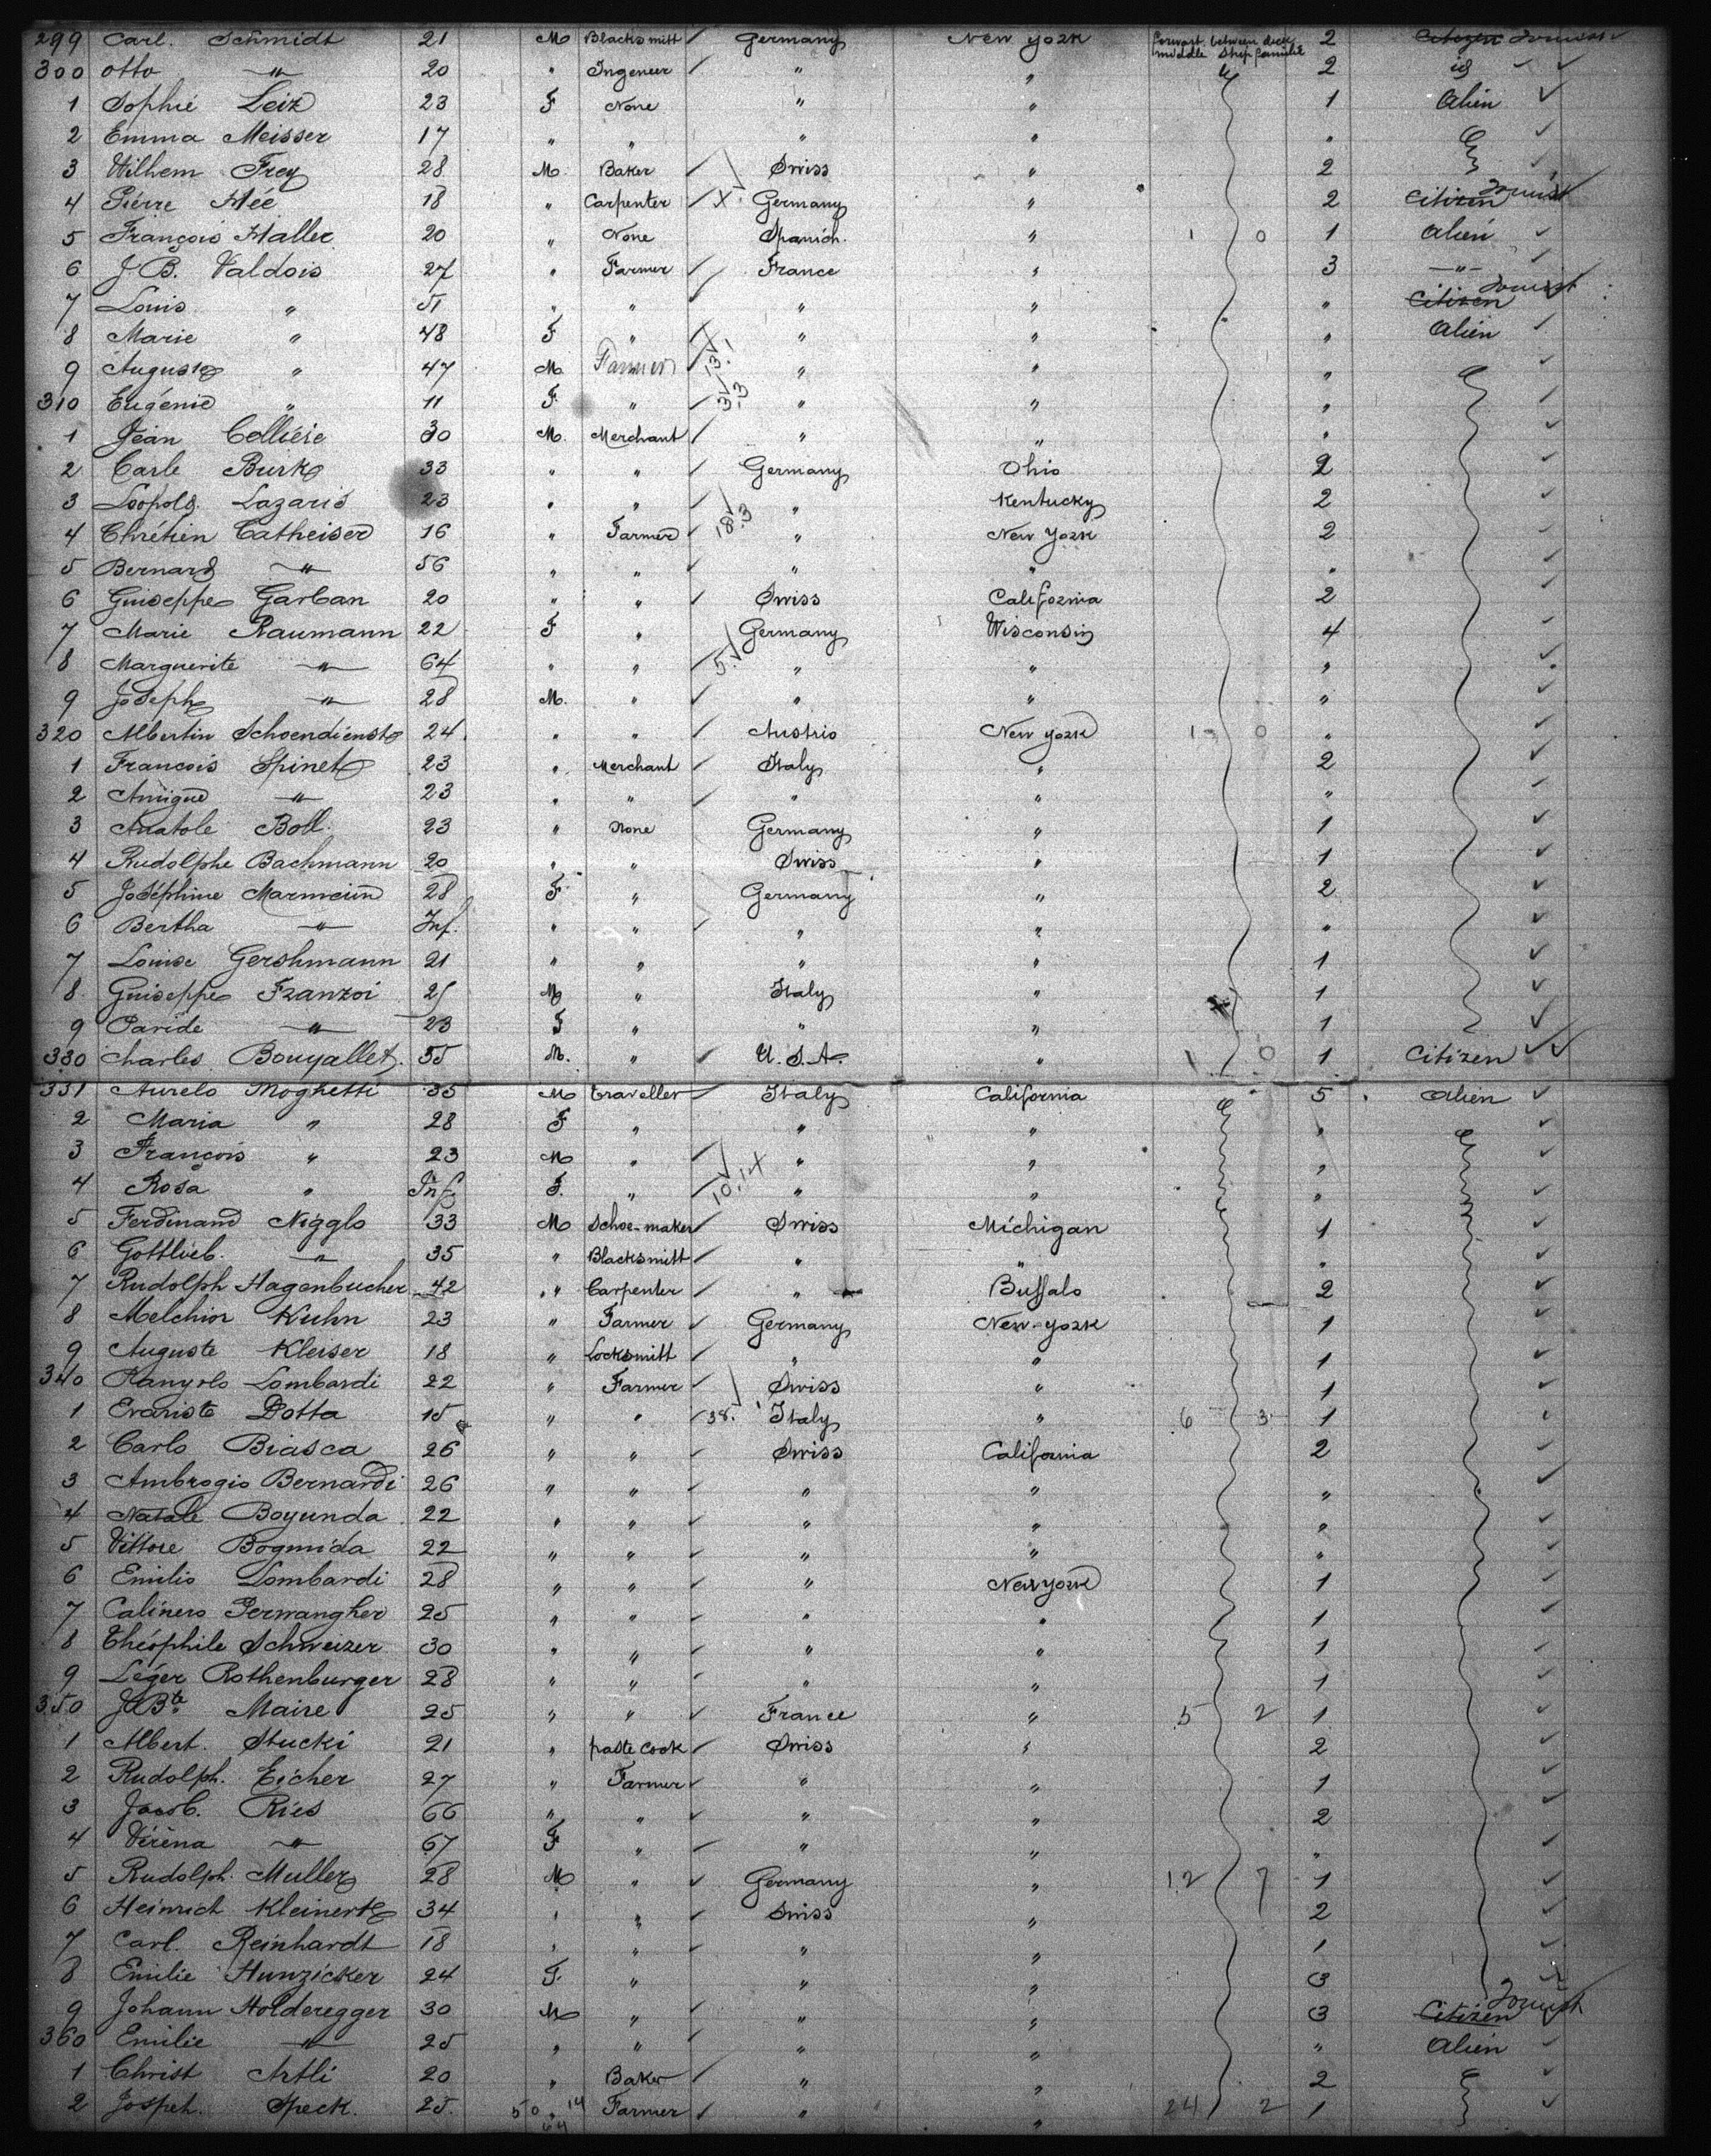 299 Carl. Schmidt 21 M Blacksmitt Germany New York Forwart. between deck middle Ship familil 2 Citizen Tourist
300 Otto " 20 " Ingeneer " " 2 id
1 Sophie Leiz 23 F None " " 1 Alien
2 Emma Meisser 17 " " " " "
3 Wilhem Frey 28 M. Baker Swiss " 2
4 Piérre Hée 18 " Carpenter X Germany " 2 Citizen Tourist
5 François Haller 20 " None Spanich. " 1 0 1 Alien
6 J B. Valdois 27 " Farmer France " 3 "
7 Louis " 51 " " " " " Citizen Tourist
8 Marie " 48 F " " " " Alien
9 Auguste " 47 M Farmer " " "
310 Eugénie " 11 F. " " " "
1 Jean 30 M. Merchant " " "
2 Carle Burke 33 " " Germany Ohio 2
3 Léopold. Lazaris 23 " " " Kentucky 2
4 Chrétien Catheiser 16 " Farmer 18.3 " New York 2
5 Bernard " 56 " " " " "
6 Guiseppe Garban 20 " " Swiss California 2
7 Marie Raumann 22 F " Germany Wisconsin 4
8 Marguerite " 64 " " 5. " " "
9 Joseph " 28 M. " " " "
320 Albertin Schoendienst 24 " " Austrio New York 1 0 "
1 Francois Spinet 23 " Merchant Italy " 2
2 " 23 " " " " "
3 Anatole Boll. 23 " None Germany " 1
4 Rudolphe Bachmann 20 " " Swiss " 1
5 Joséphine 28 F " Germany " 2
6 Bertha " Inf. " " " " "
7 Louise Gershmann 21 " " " " 1
8 Guiseppe Franzoi 25 M " Italy " 1
9 Paride " 23 F " " " 1
330 Charles Bouyallet. 55 M. " U.S.A. " 1 0 1 Citizen
331 Aurelo Moghetti 35 M traveller Italy California 5 Alien
2 Maria " 28 F " " " "
3 François " 23 M " " " "
4 Rosa " Inf F. " 10.14 " " "
5 Ferdinand Nigglo 33 M Schoe-maker Swiss Michigan 1
6 Gottlieb. " 35 " Blacksmitt " " "
7 Rudolph Hagenbucher 42 " Carpenter " Buffalo 2
8 Melchior Kuhn 23 " Farmer Germany New-York 1
9 Auguste Kleiser 18 " Locksmitt " " 1
340 Lombardi 22 " Farmer Swiss " 1
1 Evariste Dotta 15 " " 38. Italy " 6 3 1
2 Carlo Biasca 26 " " Swiss California 2
3 Ambrogio Bernardi 26 " " " " "
4 Natale Boyunda 22 " " " " "
5 Vittore 22 " " " " "
6 Emilio Lombardi 28 " " " New York 1
7 Calinero Perwangher 25 " " " " 1
8 Théophile Schweizer 30 " " " " 1
9 Léger Rothenburger 28 " " " " 1
350 J Bte Maire 25 " " France " 5 2 1
1 Albert. Stucki 21 " paste cook Swiss " 2
2 Rudolph. Eicher 27 " Farmer " " 1
3 Jacob. Ries 66 " " " " 2
4 Véréna " 67 F " " " "
5 Rudolph. Muller 28 M " Germany " 12 7 1
6 Heinrich Kleinert 34 " " Swiss " 2
7 Carl. Reinhardt 18 " " " " 1
8 Emilie Hunzicker 24 F. " " " 3
9 Johann Holderegger 30 M " " " 3 Citizen Tourist
360 Emilie " 25 " " " " " Alien
1 Christ Artli 20 " Baker " " 2
2 Jospeh. Speck. 25. 50 " 14 64 Farmer " " 24 2 1